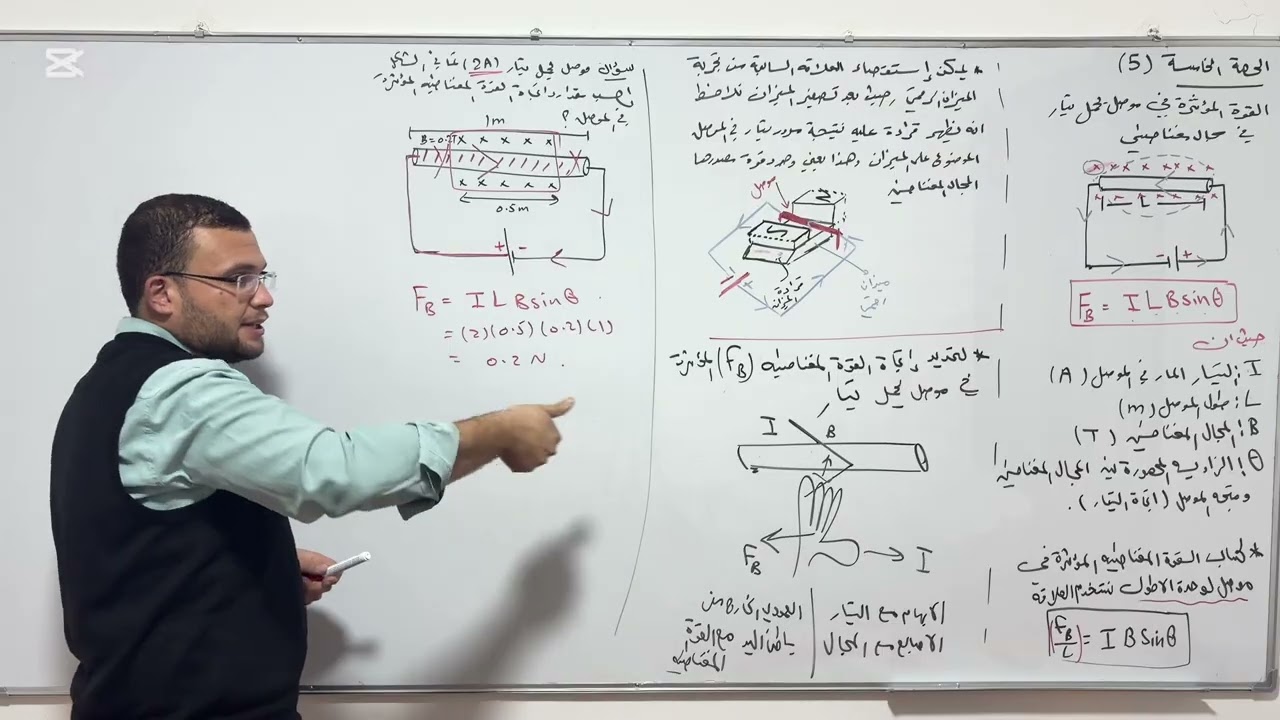 الحصة الخامسة (5)
القوة المؤثرة في موصل يحمل تيار
في مجال مغناطيسي
× × × × × × ×
L
- +
F_B = I L B sin θ
حيث ان
I: التيار المار في الموصل (A)
L: طول الموصل (m)
B: المجال المغناطيسي (T)
θ: الزاوية المحصورة بين المجال المغناطيسي
ومتجه الموصل (اتجاه التيار).
* لحساب القوة المغناطيسية المؤثرة في
موصل لوحدة الاطوال نستخدم العلاقة
(F_B/L) = I B Sin θ
* يمكن إستقصاء العلاقة السابقة من تجربة
الميزان الرقمي حيث بعد تصفير الميزان نلاحظ
انه يظهر قراءة عليه نتيجة مرور تيار في الموصل
الموضوع على الميزان وهذا يعني وجود قوة مصدرها
المجال المغناطيسي
موصل
N
S
قراءة
الميزان
ميزان
* لتحديد إتجاه القوة المغناطيسية (F_B) المؤثرة
في موصل يحمل تيار
I B
F_B I
الابهام مع التيار
الاصابع مع المجال
العمودي الخارج من
باطن اليد مع القوة
المغناطيسية
سؤال: موصل يحمل تيار (2A) كما في الشكل
احسب مقدار واتجاه القوة المغناطيسية المؤثرة
في الموصل؟
1m
B = 0.2T × × × × ×
× × × × ×
0.5m
+ -
F_B = I L B sin θ
= (2)(0.5)(0.2)(1)
= 0.2 N.